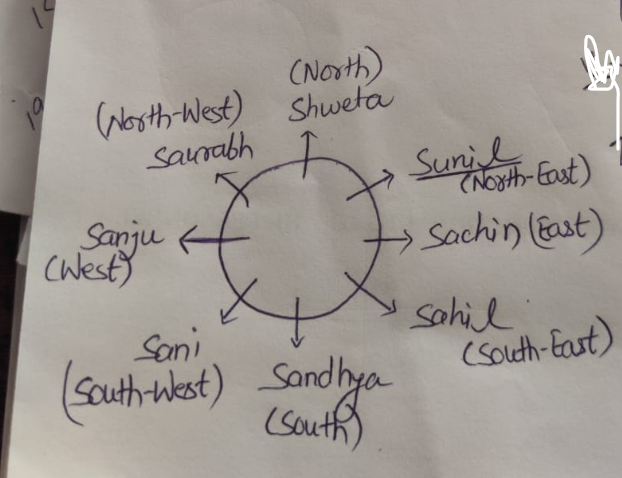 (North)
Shweta
(North-West)
Saurabh
Sunil
(North-East)
Sanju
(West)
Sachin (East)
Sahil
(South-East)
Sani
(South-West)
Sandhya
(South)